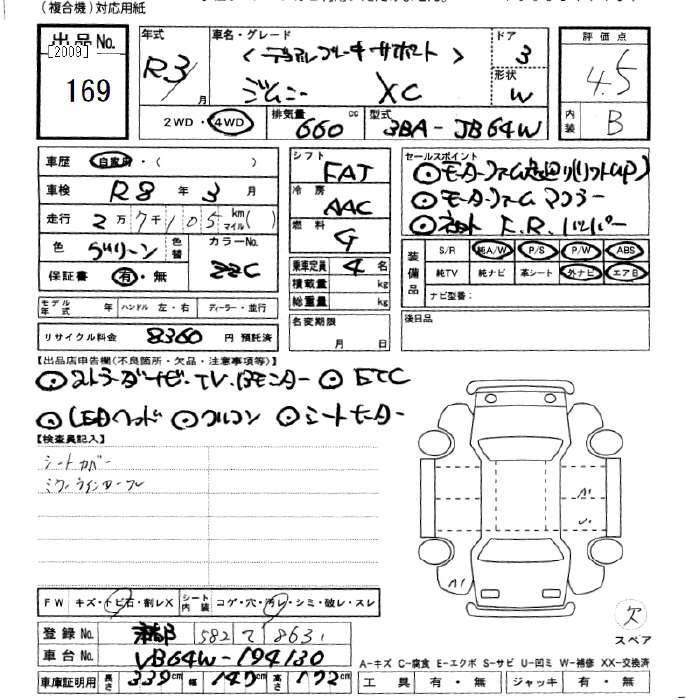 (複合機)対応用紙
出品No.
[2009]
169
年式
R3/
月
車名・グレード
(デュアルブレーキサポート)
ジムニー XC
ドア
3
形状
W
2WD・4WD
排気量
660 cc
型式
3BA-JB64W
評価点
4.5
内装
B
車歴
自家用・( )
車検
R8年3月
走行
2万7千105km マイル( )
色
グリーン
色替
カラーNo.
ZZC
保証書
有・無
シフト
FAT
冷房
AAC
燃料
G
乗車定員 4名
積載量 kg
総重量 kg
名変期限
月 日
セールスポイント
⊙モーターファーム足回り(リフトUP)
⊙モーターファームマフラー
⊙ネオト F.R.バンパー
装備品
S/R 純A/W P/S P/W ABS
純TV 純ナビ 革シート 外ナビ エアB
ナビ型番:
後日品
モデル年式 年 ハンドル 左・右 ディーラー・並行
リサイクル料金 8360円 預託済
【出品店申告欄(不良箇所・欠品・注意事項等)】
⊙ストラーダナビ・TV.Bモニター ⊙ETC
⊙LEDヘッド ⊙クルコン ⊙シートヒーター
【検査員記入】
シートカバー
FW キズ・トビ石・割レX シート内装 コゲ・穴・汚レ・シミ・破レ・スレ
登録No.
582 て 8631
車台No.
JB64W-194130
車庫証明用 長さ 339cm 幅 147cm 高さ 172cm
A1
A1
欠
スペア
A-キズ C-腐食 E-エクボ S-サビ U-凹ミ W-補修 XX-交換済
工具 有・無 ジャッキ 有・無